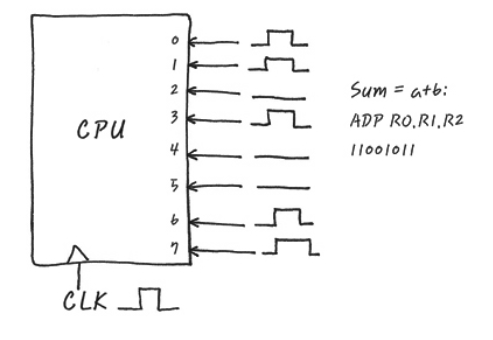 0
1
2
3
4
5
6
7
CPU
CLK
Sum = a+b:
ADP R0,R1,R2
11001011